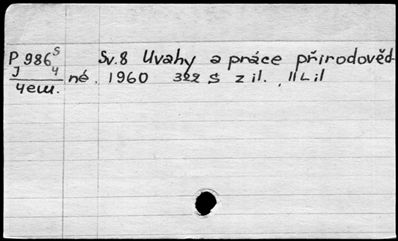 P 986 5/4 Sv.8 Úvahy a práce přírodověd-
J né. 1960 322 s z il., II L il
Чеш.